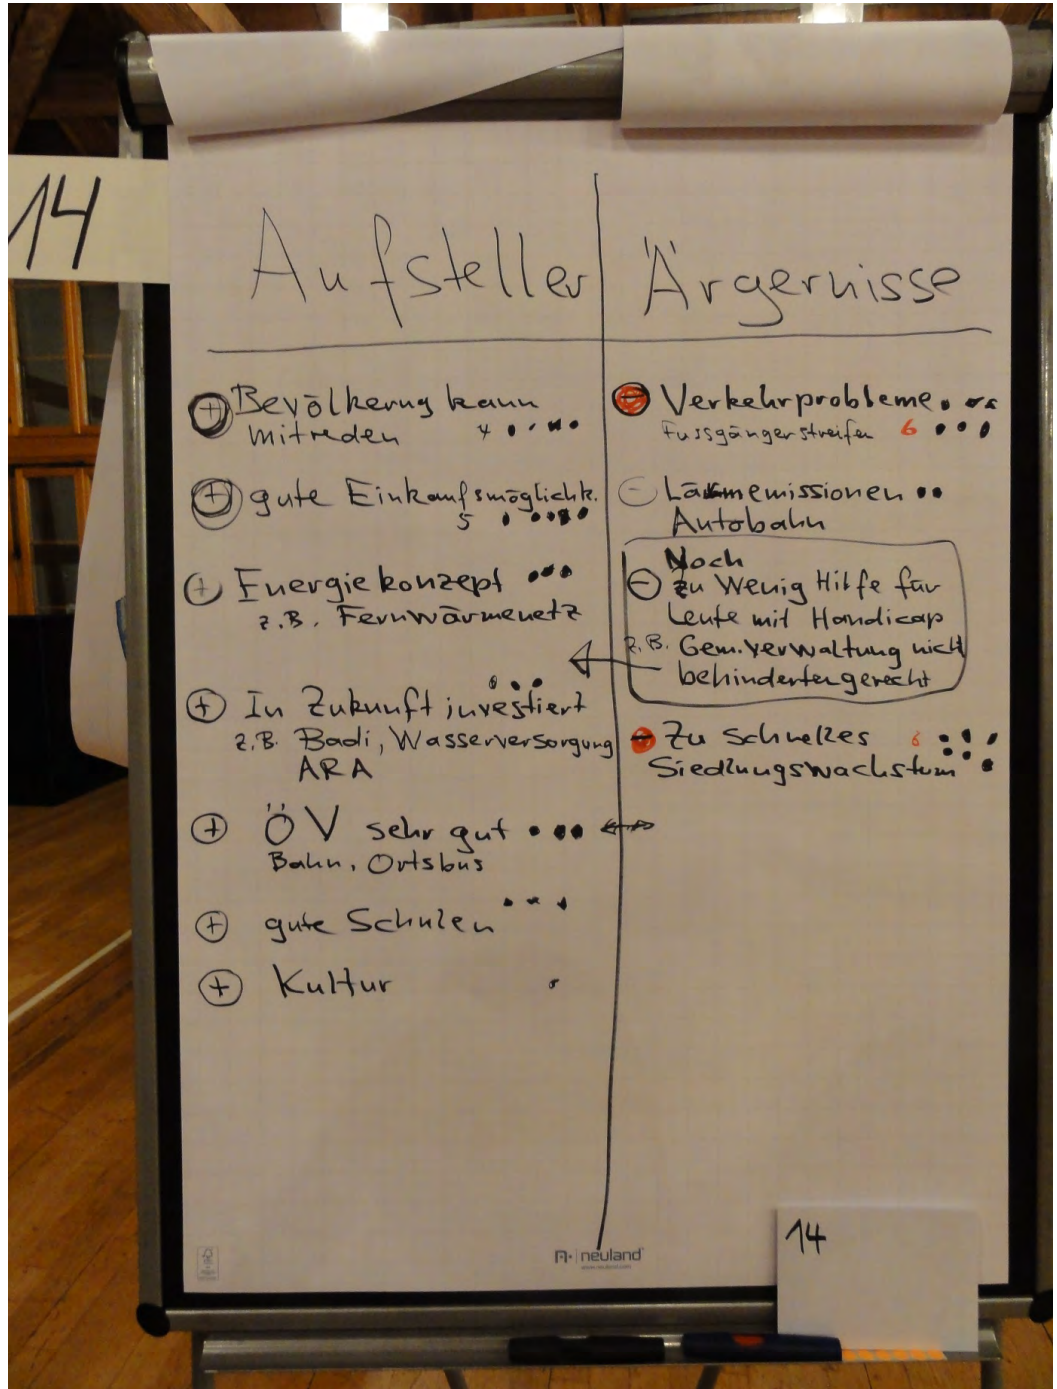 14
Aufsteller
⊕ Bevölkerng kann
mitreden 4
⊕ gute Einkaufsmöglichk.
5
⊕ Energiekonzept
z.B. Fernwärmenetz
⊕ In Zukunft investiert
z.B. Badi, Wasserversorgung
ARA
⊕ ÖV sehr gut
Bahn, Ortsbus
⊕ gute Schulen
⊕ Kultur
Ärgernisse
⊖ Verkehrprobleme
Fussgängerstreifen 6
⊖ Lärmemissionen
Autobahn
Noch
⊖ zu Wenig Hilfe für
Leute mit Handicap
z.B. Gem.verwaltung nicht
behindertengerecht
⊖ Zu schnelles 6
Siedlungswachstum
neuland
14